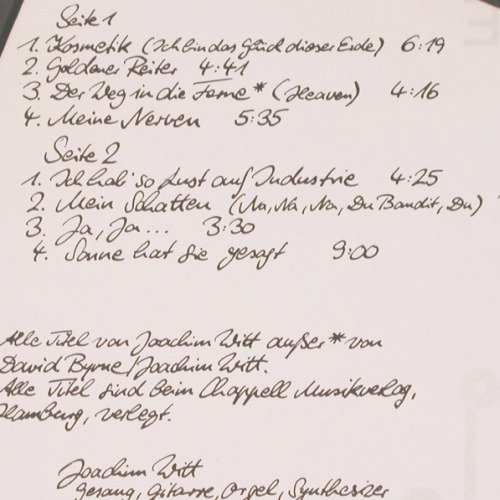 Seite 1
1. Kosmetik (Ich bin das Glück dieser Erde) 6:19
2. Goldener Reiter 4:41
3. Der Weg in die Ferne* (Heaven) 4:16
4. Meine Nerven 5:35
Seite 2
1. Ich hab' so Lust auf Industrie 4:25
2. Mein Schatten (Na, Na, Na, Du Bandit, Du)
3. Ja, Ja... 3:30
4. Sonne hat sie gesagt 9:00
Alle Titel von Joachim Witt außer * von
David Byrne/Joachim Witt.
Alle Titel sind beim Chappell Musikverlag,
Hamburg, verlegt.
Joachim Witt
Gesang, Gitarre, Orgel, Synthesizer